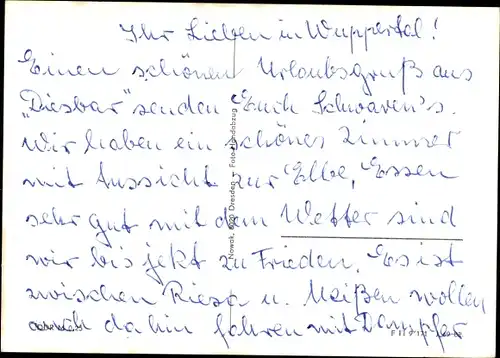 Ihr Lieben in Wuppertal!
Einen schönen Urlaubsgruß aus
"Diesbar" senden Euch Schwaren's.
Wir haben ein schönes Zimmer
mit Aussicht zur Elbe, Essen
sehr gut mit dem Wetter sind
wir bis jetzt zu Frieden. Es ist
zwischen Riesa u. Meißen wollen
auch da hin fahren mit Dampfer
Nowak, Dresden – Foto-Handabzug